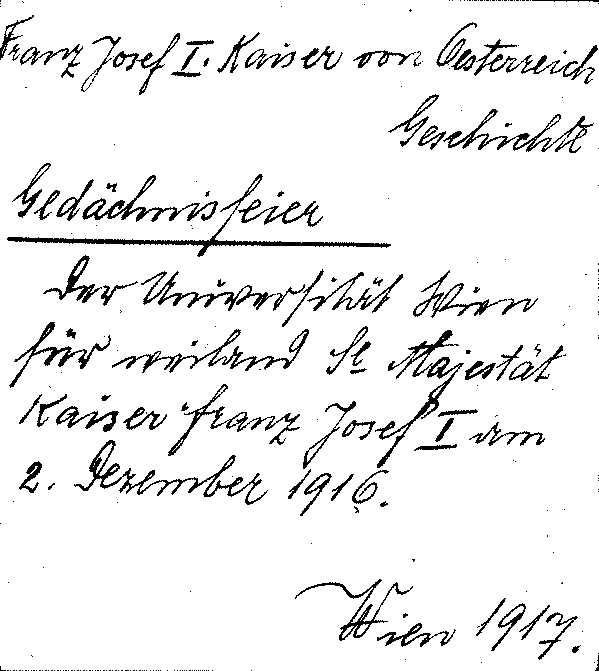 Franz Josef I. Kaiser von Oesterreich
Geschichte
Gedächnisfeier
der Universität Wien
für weiland Se Majestät
Kaiser Franz Josef I am
2. Dezember 1916.
Wien 1917.